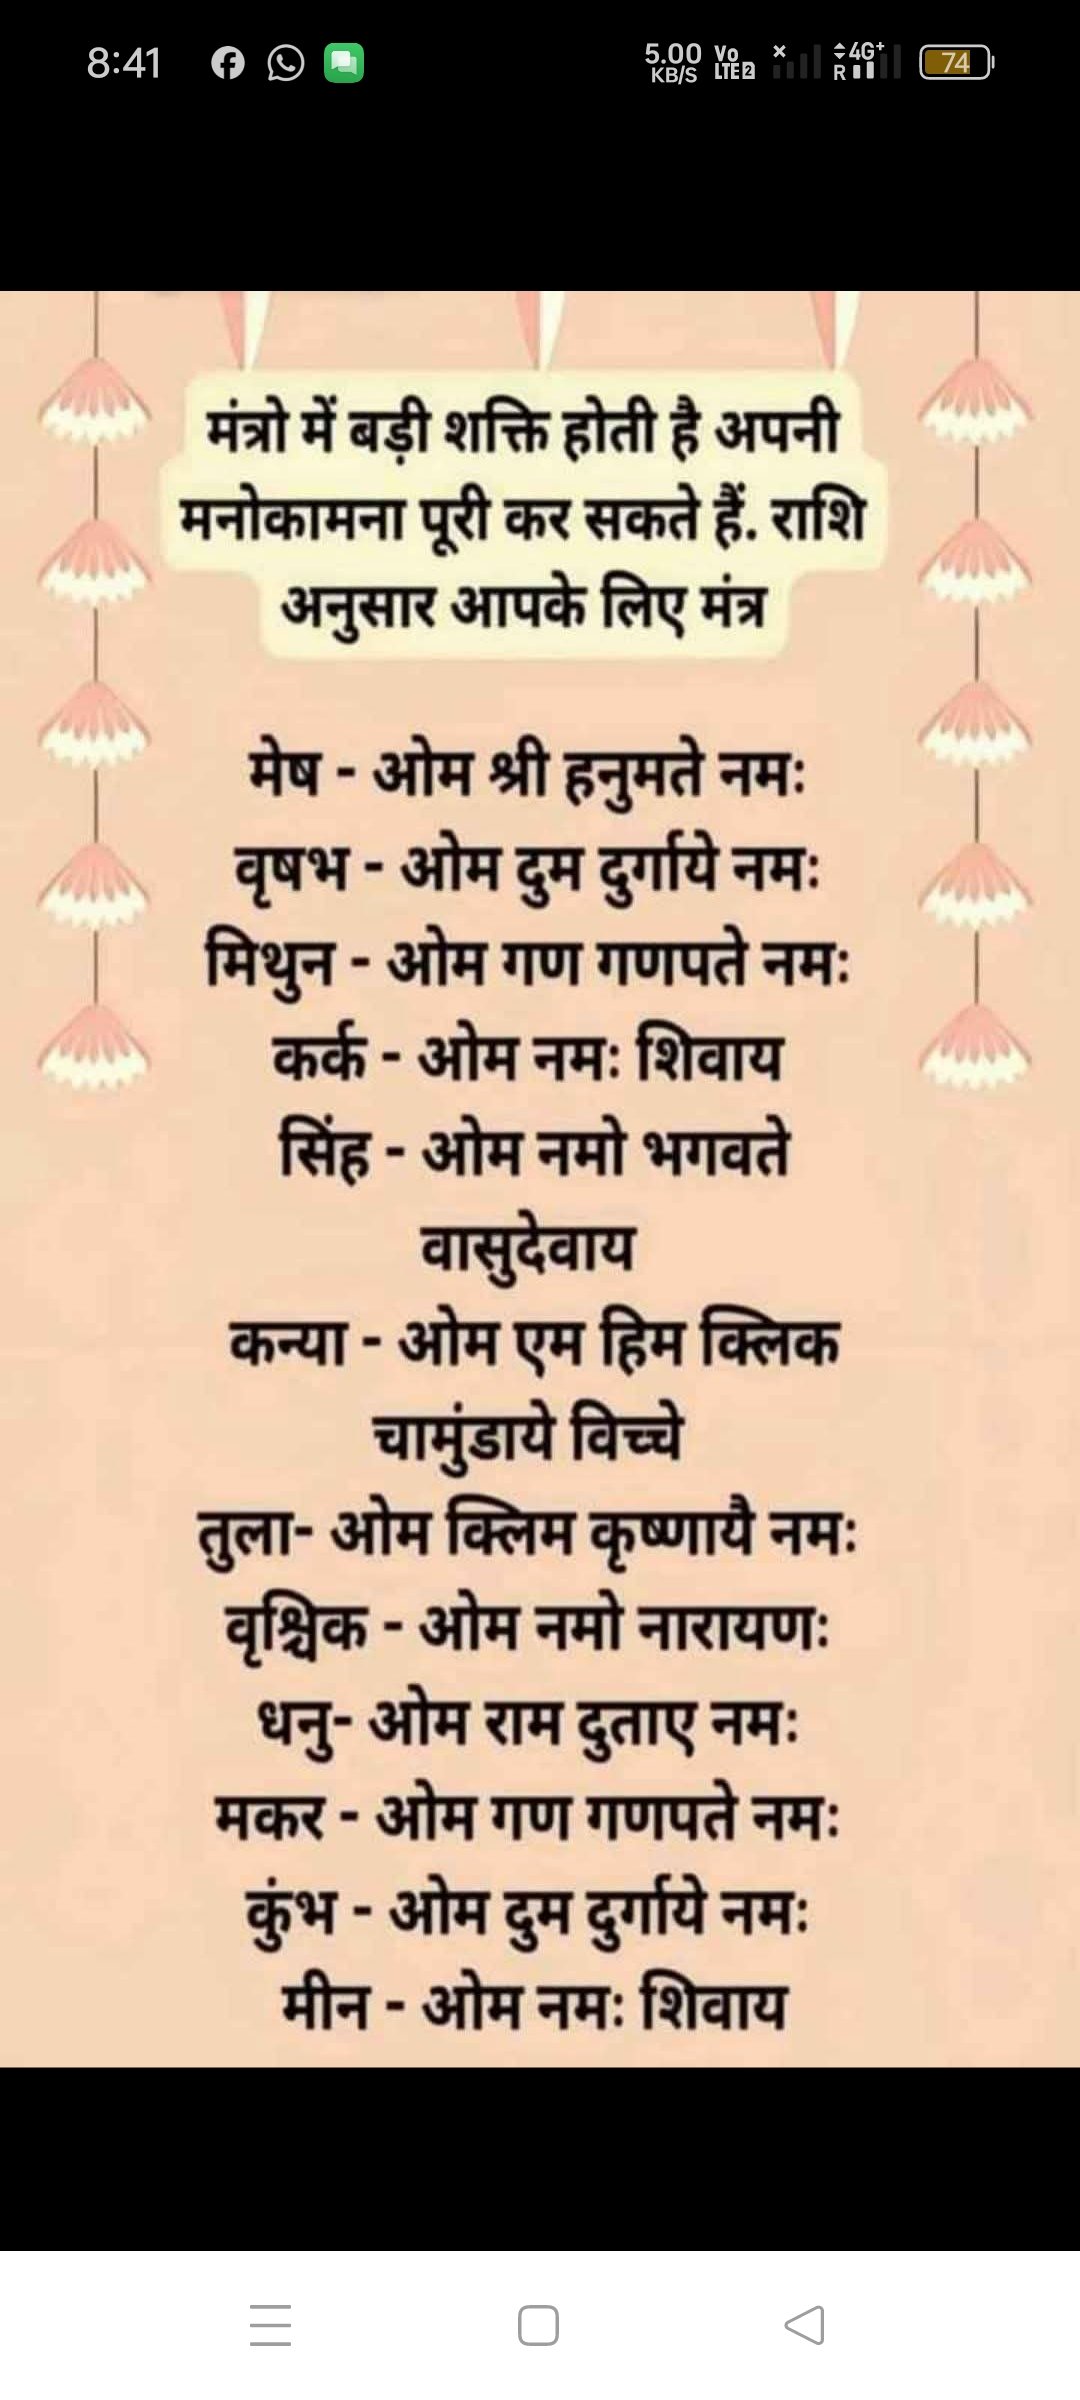 8:41
5.00 KB/S Vo LTE 2 4G+ R 74
मंत्रो में बड़ी शक्ति होती है अपनी
मनोकामना पूरी कर सकते हैं. राशि
अनुसार आपके लिए मंत्र
मेष - ओम श्री हनुमते नमः
वृषभ - ओम दुम दुर्गाये नमः
मिथुन - ओम गण गणपते नमः
कर्क - ओम नमः शिवाय
सिंह - ओम नमो भगवते
वासुदेवाय
कन्या - ओम एम हिम क्लिक
चामुंडाये विच्चे
तुला- ओम क्लिम कृष्णायै नमः
वृश्चिक - ओम नमो नारायणः
धनु- ओम राम दुताए नमः
मकर - ओम गण गणपते नमः
कुंभ - ओम दुम दुर्गाये नमः
मीन - ओम नमः शिवाय